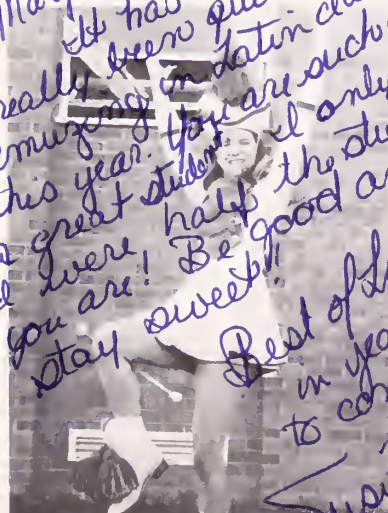 It has
really been
amuzing in Latin
this year. You are such
a great student I only
were half the
you are! Be good
stay sweet!
Best of
in
to